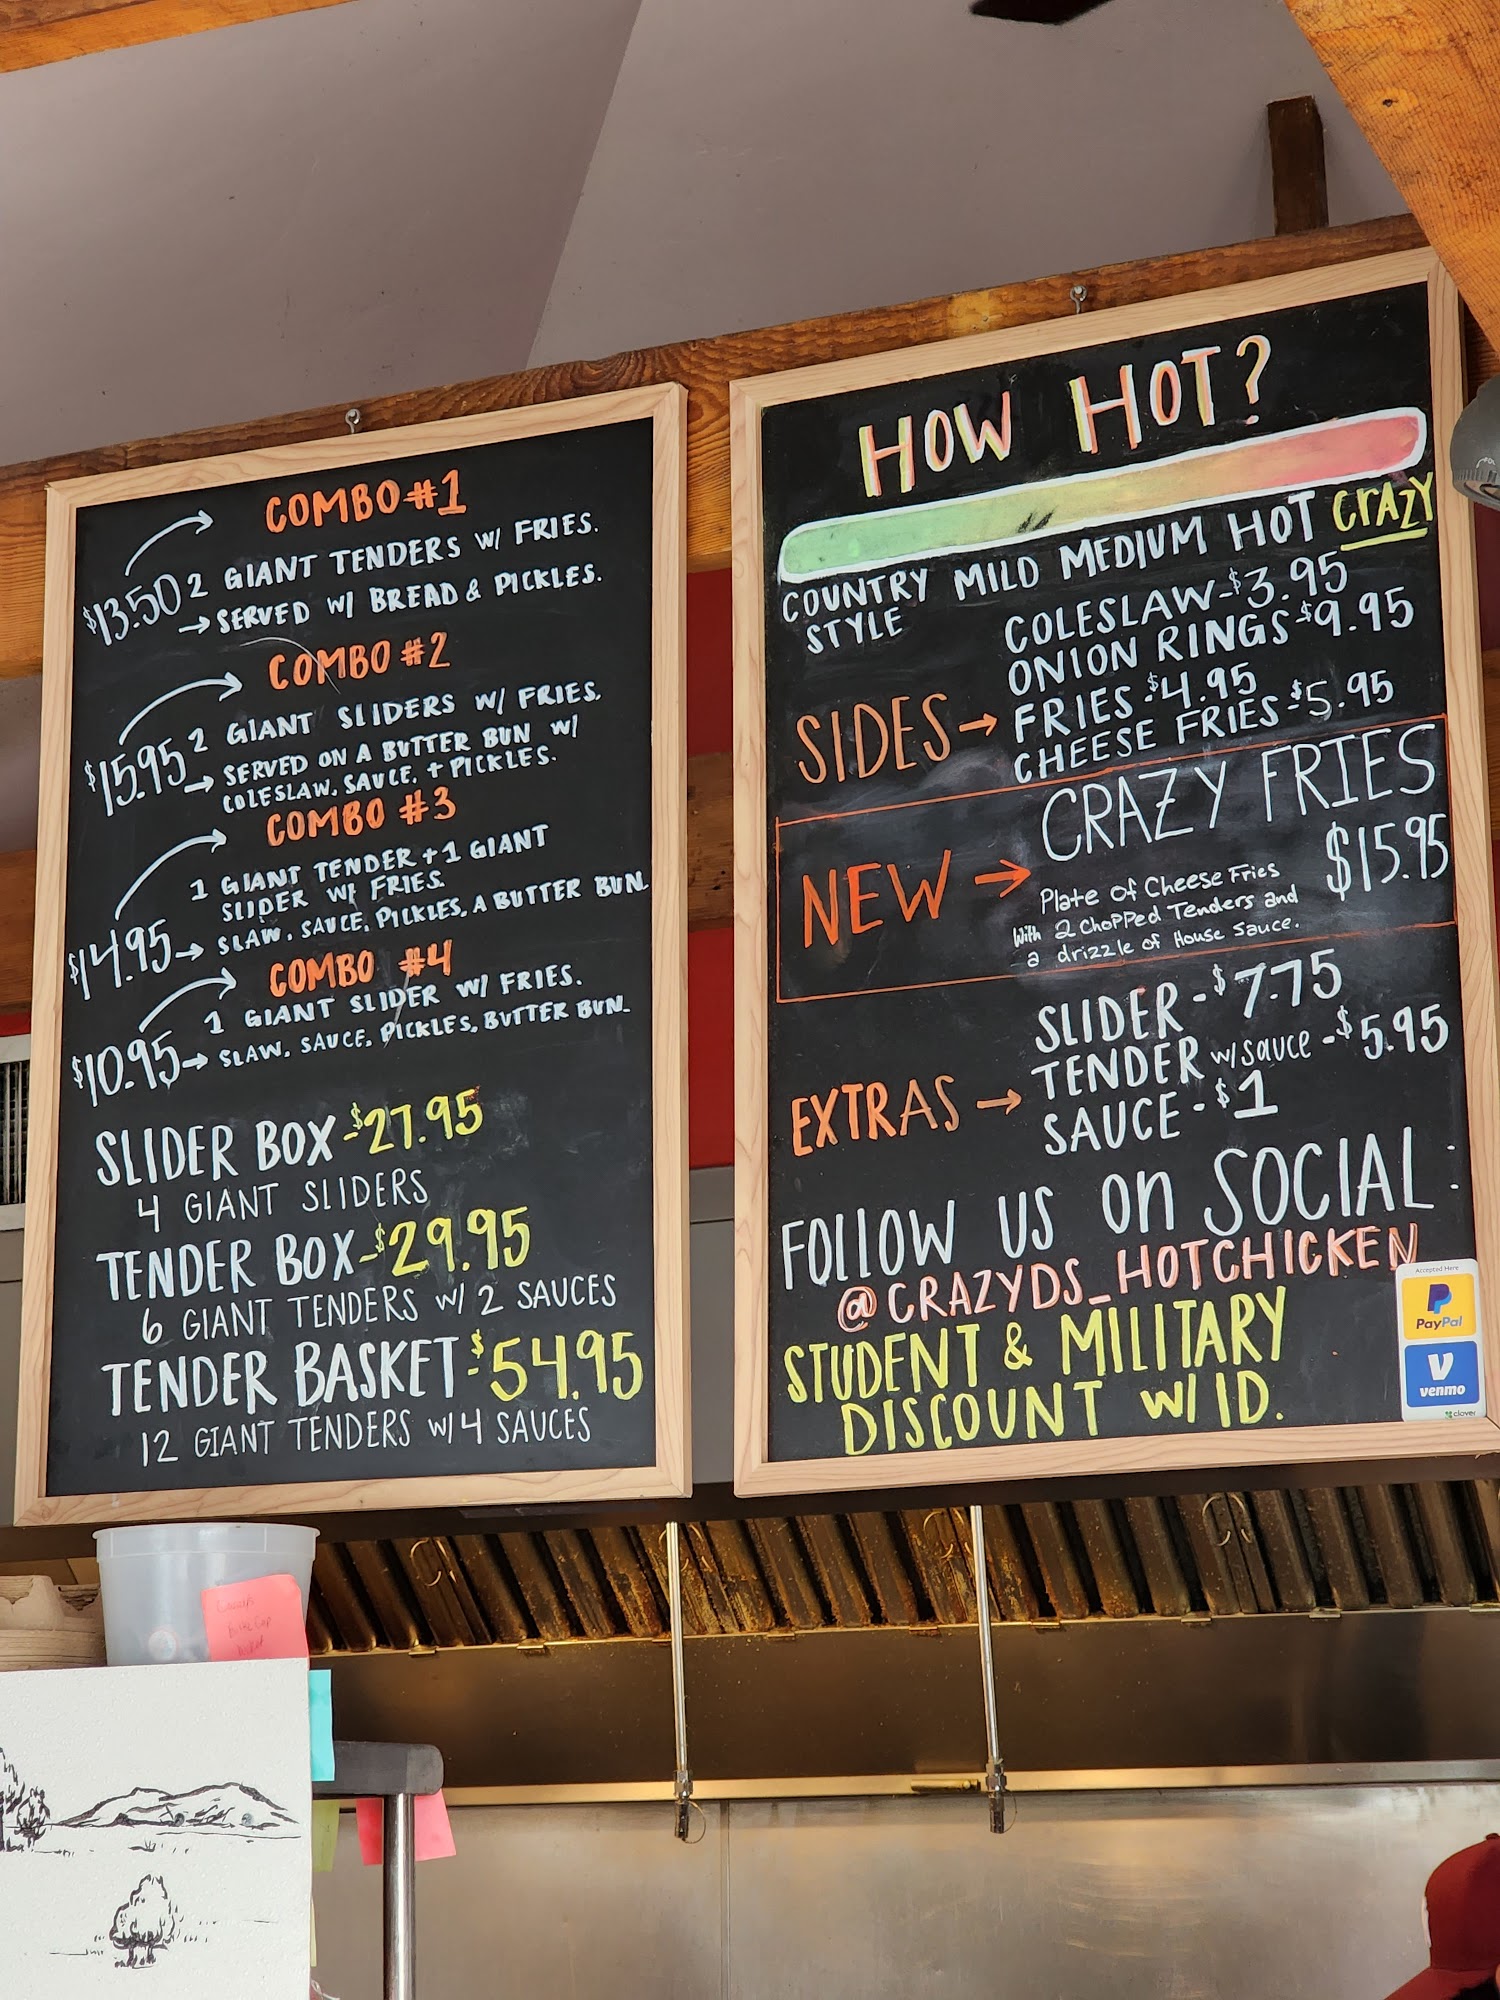 COMBO #1
$13.50 2 GIANT TENDERS W/ FRIES.
→ SERVED W/ BREAD & PICKLES.
COMBO #2
$15.95 2 GIANT SLIDERS W/ FRIES.
→ SERVED ON A BUTTER BUN W/
COLESLAW, SAUCE, + PICKLES.
COMBO #3
1 GIANT TENDER + 1 GIANT
SLIDER W/ FRIES.
$14.95 → SLAW, SAUCE, PICKLES, A BUTTER BUN.
COMBO #4
1 GIANT SLIDER W/ FRIES.
$10.95 → SLAW, SAUCE, PICKLES, BUTTER BUN.
SLIDER BOX - $27.95
4 GIANT SLIDERS
TENDER BOX - $29.95
6 GIANT TENDERS W/ 2 SAUCES
TENDER BASKET - $54.95
12 GIANT TENDERS W/ 4 SAUCES
HOW HOT?
COUNTRY STYLE MILD MEDIUM HOT CRAZY
SIDES →
COLESLAW - $3.95
ONION RINGS - $9.95
FRIES - $4.95
CHEESE FRIES - $5.95
NEW →
CRAZY FRIES
$15.95
Plate of Cheese Fries
With 2 Chopped Tenders and
a drizzle of House Sauce.
EXTRAS →
SLIDER - $7.75
TENDER w/sauce - $5.95
SAUCE - $1
FOLLOW US on SOCIAL:
@CRAZYDS_HOTCHICKEN
STUDENT & MILITARY
DISCOUNT W/ ID.
Accepted Here
PayPal
venmo
clover